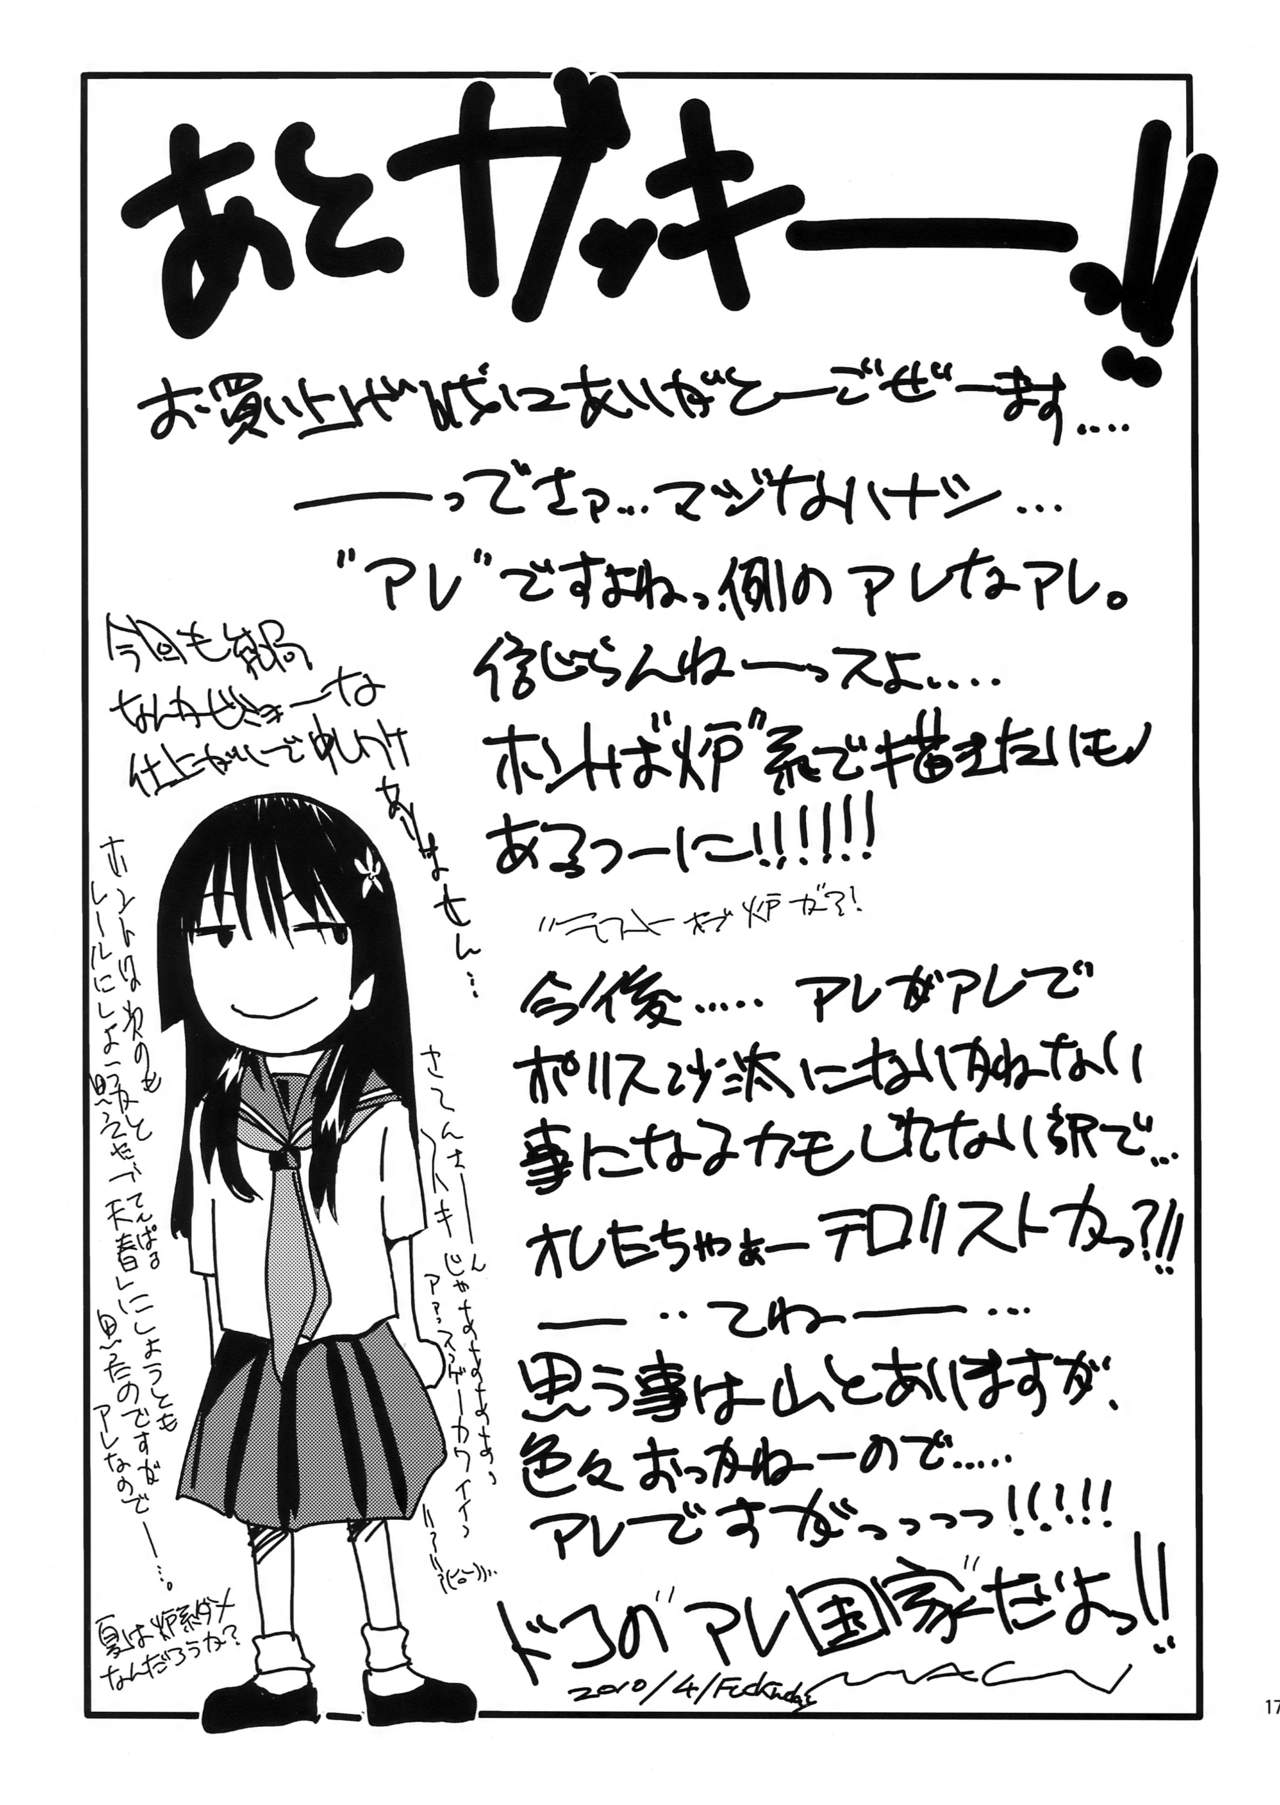 あとガッキーーッ!!
お買い上げ誠にありがとーごぜーます....
――ってさァ...マジなハナシ...
"アレ"ですよねっ、例のアレなアレ。
信じらんねーーっスよ....
ホントは"炉"系で描きたいもん
あるつーに!!!!!!
今後.....アレがアレで
ポリス沙汰になりかねない
事になるカモしれない訳で...
オレたちゃぁーテロリストかっ?!!
――‥てねーー...
思う事は山とありますが、
色々おっかねーので.....
アレですがっっっっ!!!!!
ドコの"アレ国家"だよっ!!
2010/4/
今回も結局
なんかビミョーな
仕上がりで申し訳
ありません...
ホントは次のも
レールにしようかと
思うをづ
てんぱる
天春レにしようとも
思ったのですが
アレなのでー...。
夏は炉系ダメ
なんだろうか?
17